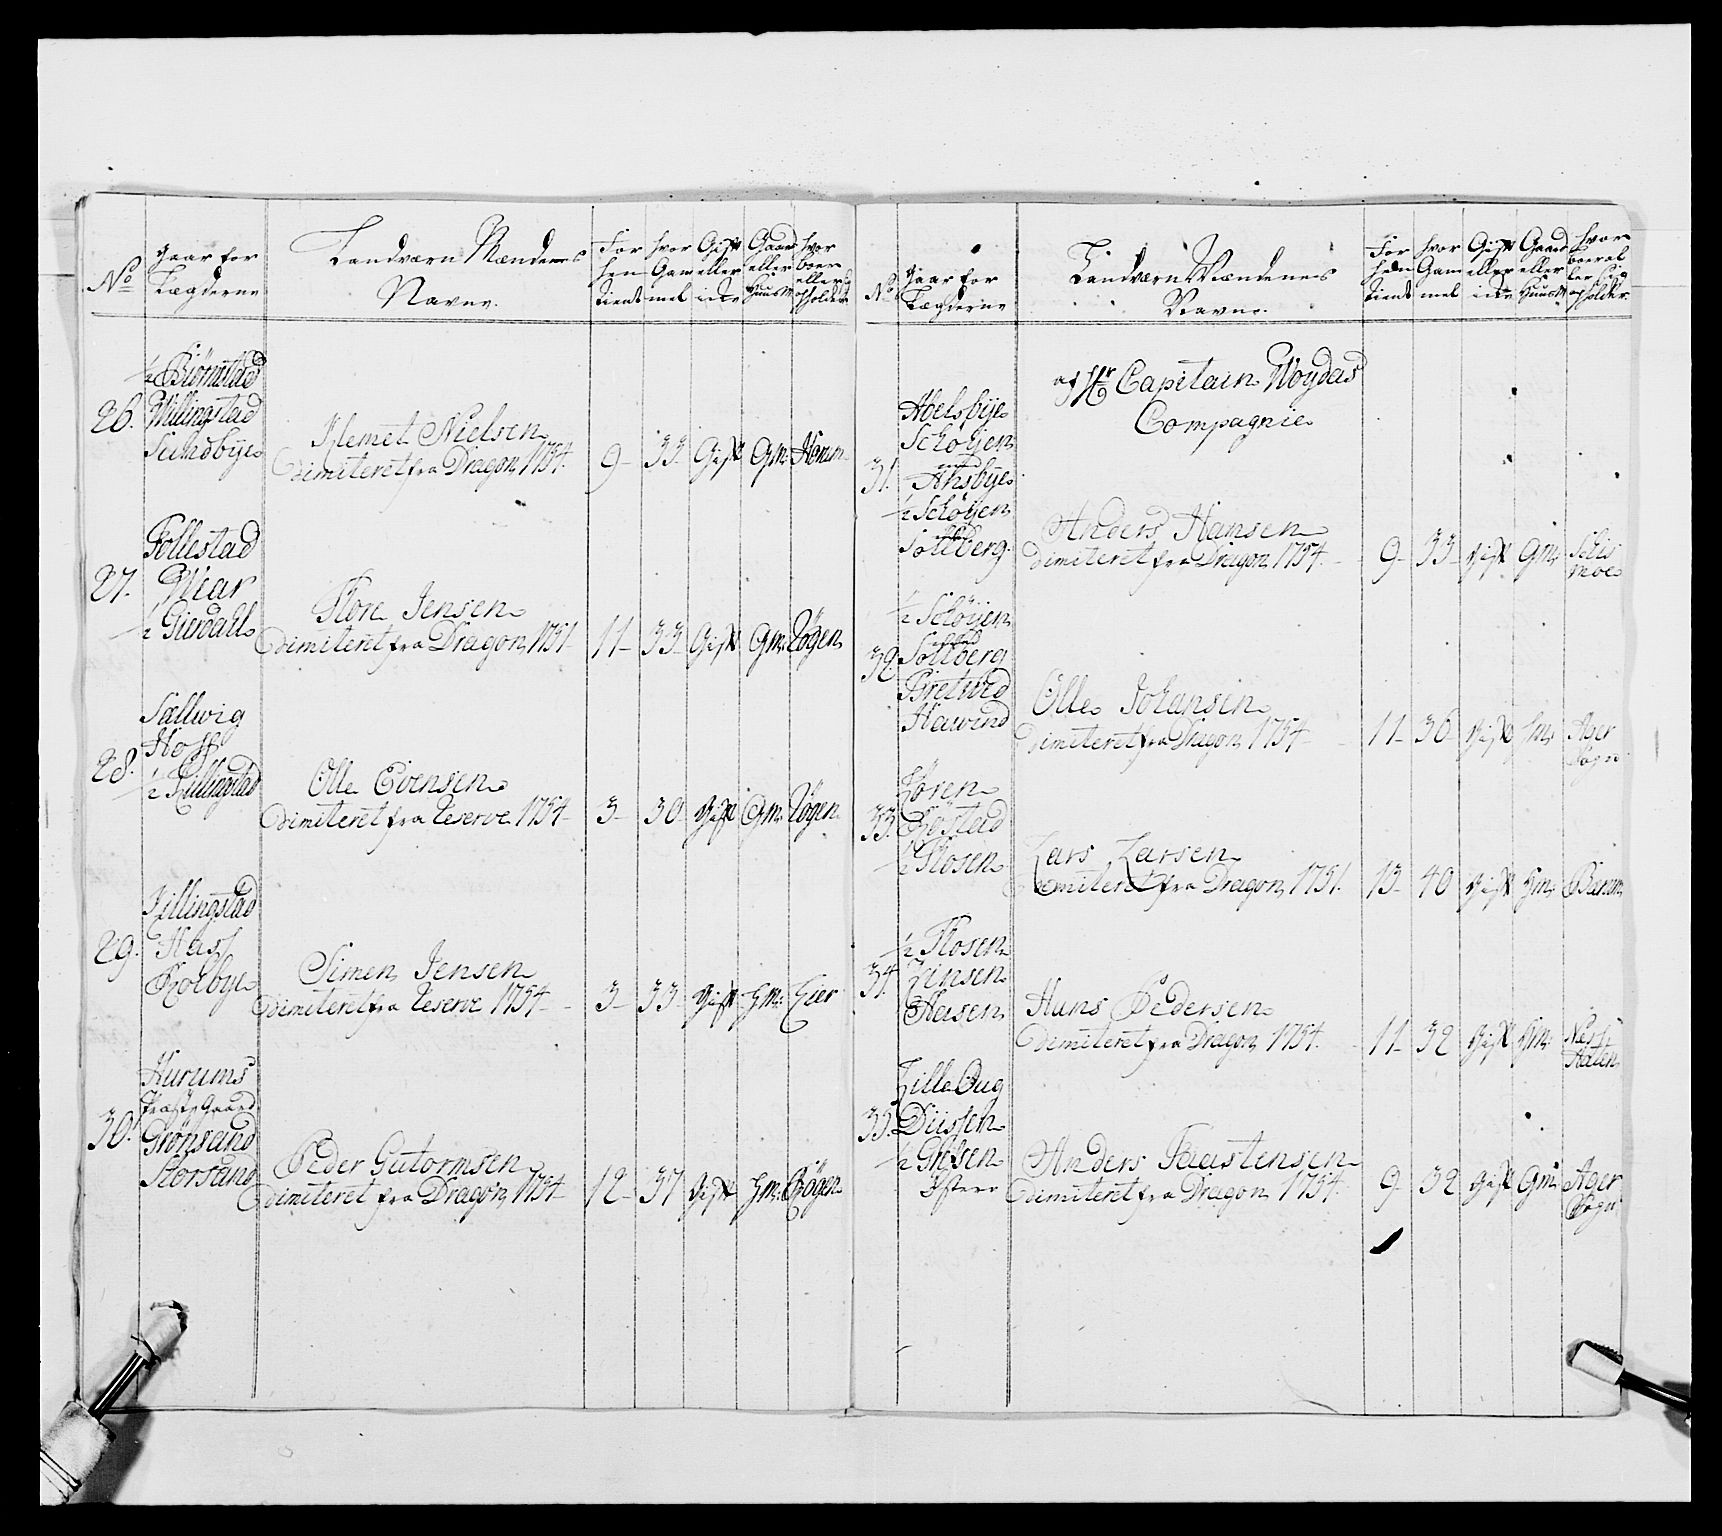 No
Gaar for
Lægderne
Landværn Mændenes
Navne.
For
hen
tient
hvor
Gam
mel
Gift
eller
icke
Gaard
eller
Huus M
hvor
boer
eller
opholder
26.
½ Biörnstad
Willingstad
Sundbye
Klemet Nielsen
dimiteret fra Dragon 1754.
9 33 Gift Gm: Hurum
27.
Follestad
Wiar
½ Gierdahl
Tore Jensen
dimiteret fra Dragon 1751
11 33 Gift Gm: Rögen
28.
Sællwig
Hoff
½ Killingstad
Olle Evensen
dimiteret fra Reserve 1754
3 30 Gift Gm: Rögen
29.
Killingstad
Kolbye
Simen Jensen
dimiteret fra Reserve 1754
3 33 Gift Hm: Eier
30.
Hurums
Præste Gaard
Grönsand
Storsand
Peder Gutormsen
dimiteret fra Dragon 1754
12 37 Gift Hm: Rögen
No
Gaar for
Lægderne
Landværn Mændenes
Navne.
For
hen
tient
hvor
Gam
mel
Gift
eller
icke
Gaard
eller
Huus M
hvor
boer
eller sig
opholder.
af Hr Capitain Woydas
Compagnie
31.
Abelsbye
Schoyen
Ahsbye
½ Schöyen
Sollberg
Anders Hansen
dimiteret fra Dragon 1754.
9 33 gift Gm:
32.
½ Schöyen
Sollberg
Bretwed
Hawind
Olle Johansen
dimiteret fra Dragon 1754
11 36 gift Hm: Ager
Sogn
33.
Lören
Röstad
½ Rosen
Lars Larsen
dimiteret fra Dragon 1751.
13 40 gift Hm: Bærum
34.
½ Rosen
Linsen
Hans Pedersen
dimiteret fra Dragon 1754.
11 32 gift Hm:
35.
Lille Oug
Diisen
½ Grefsen
Anders Taastensen
dimiteret fra Dragon 1754.
9 32 gift Gm: Ager
Sogn